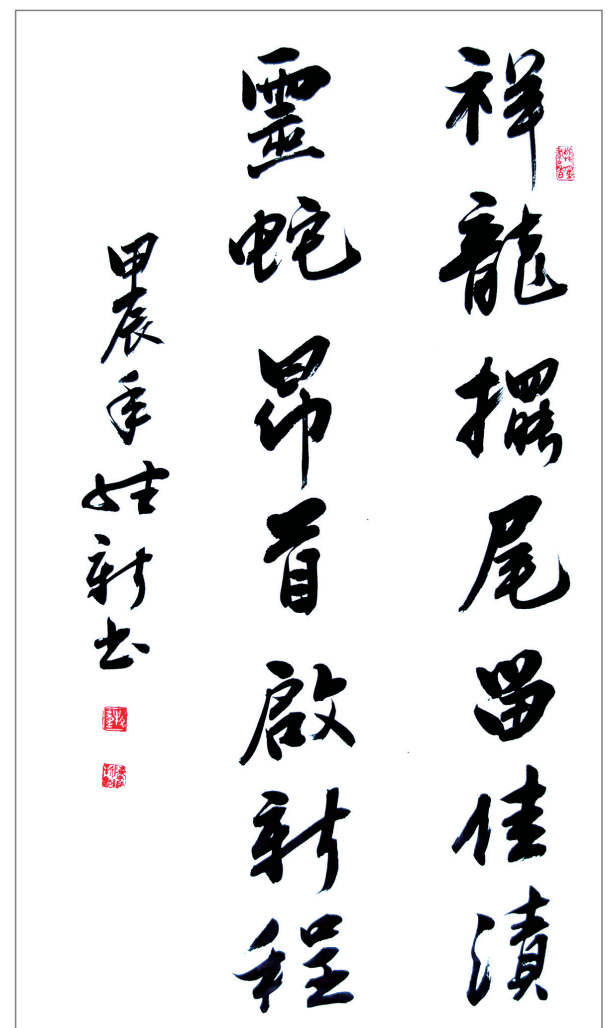 祥龍擺尾留佳漬
靈蛇昂首啟新程
甲辰年 新书